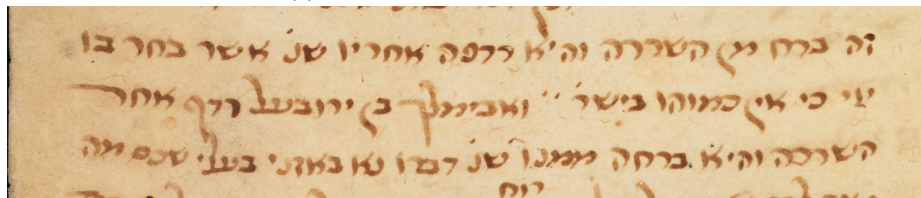 זה ברח מן השררה והיא רדפה אחריו שנ' אשר בחר בו
ייי כי אין כמוהו בישר' ואבימלך בן ירובעל רדף אחר
השררה והיא ברחה ממנו שנ' דברו נא באזני בעלי שכם מה
רוח